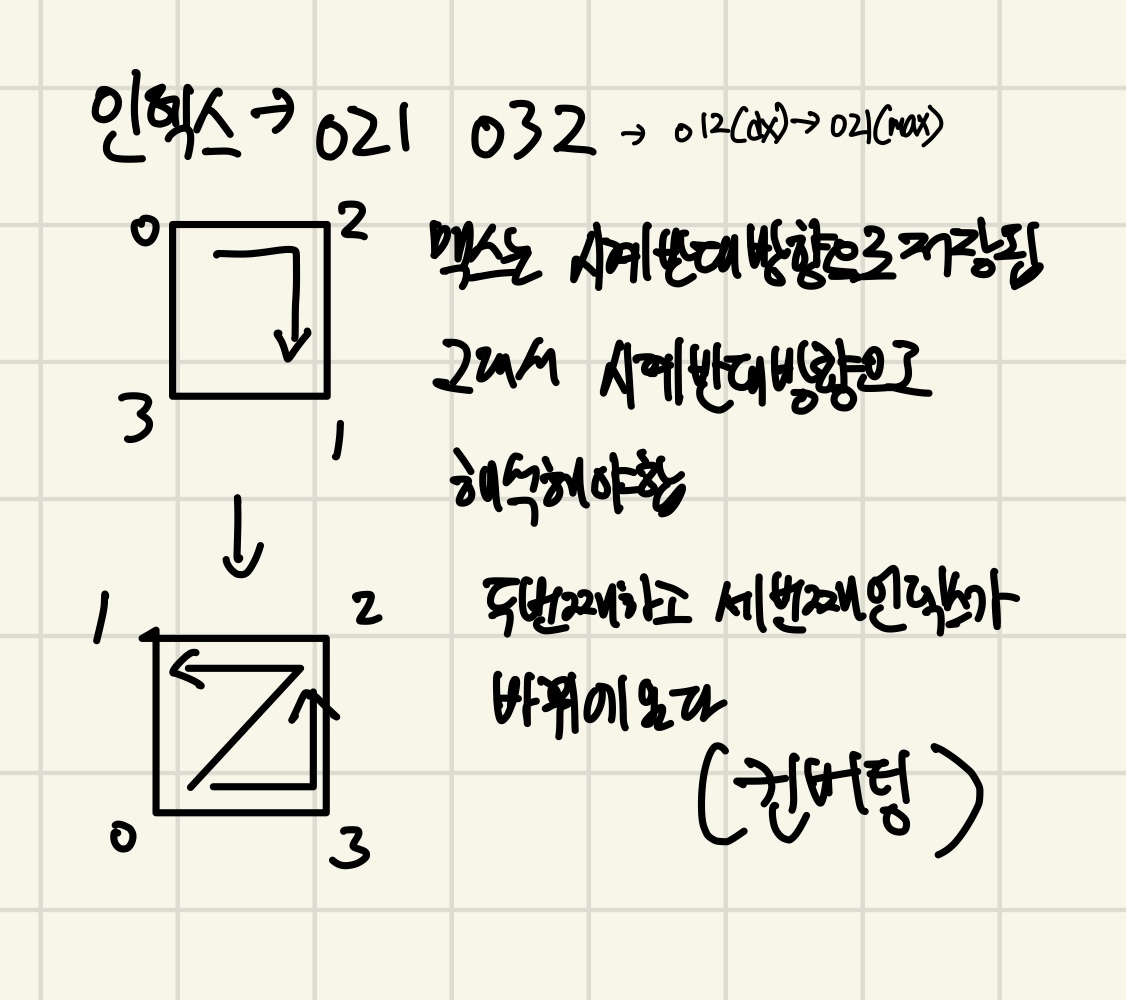 인덱스 → 021 032 → 012(dx) → 021(max)
0 2
맥스는 시계반대방향으로 저장됨
그래서 시계반대방향으로
3 1
해석해야함
1 2
두번째하고 세번째 인덱스가
바뀌어있다
(컨버팅)
0 3